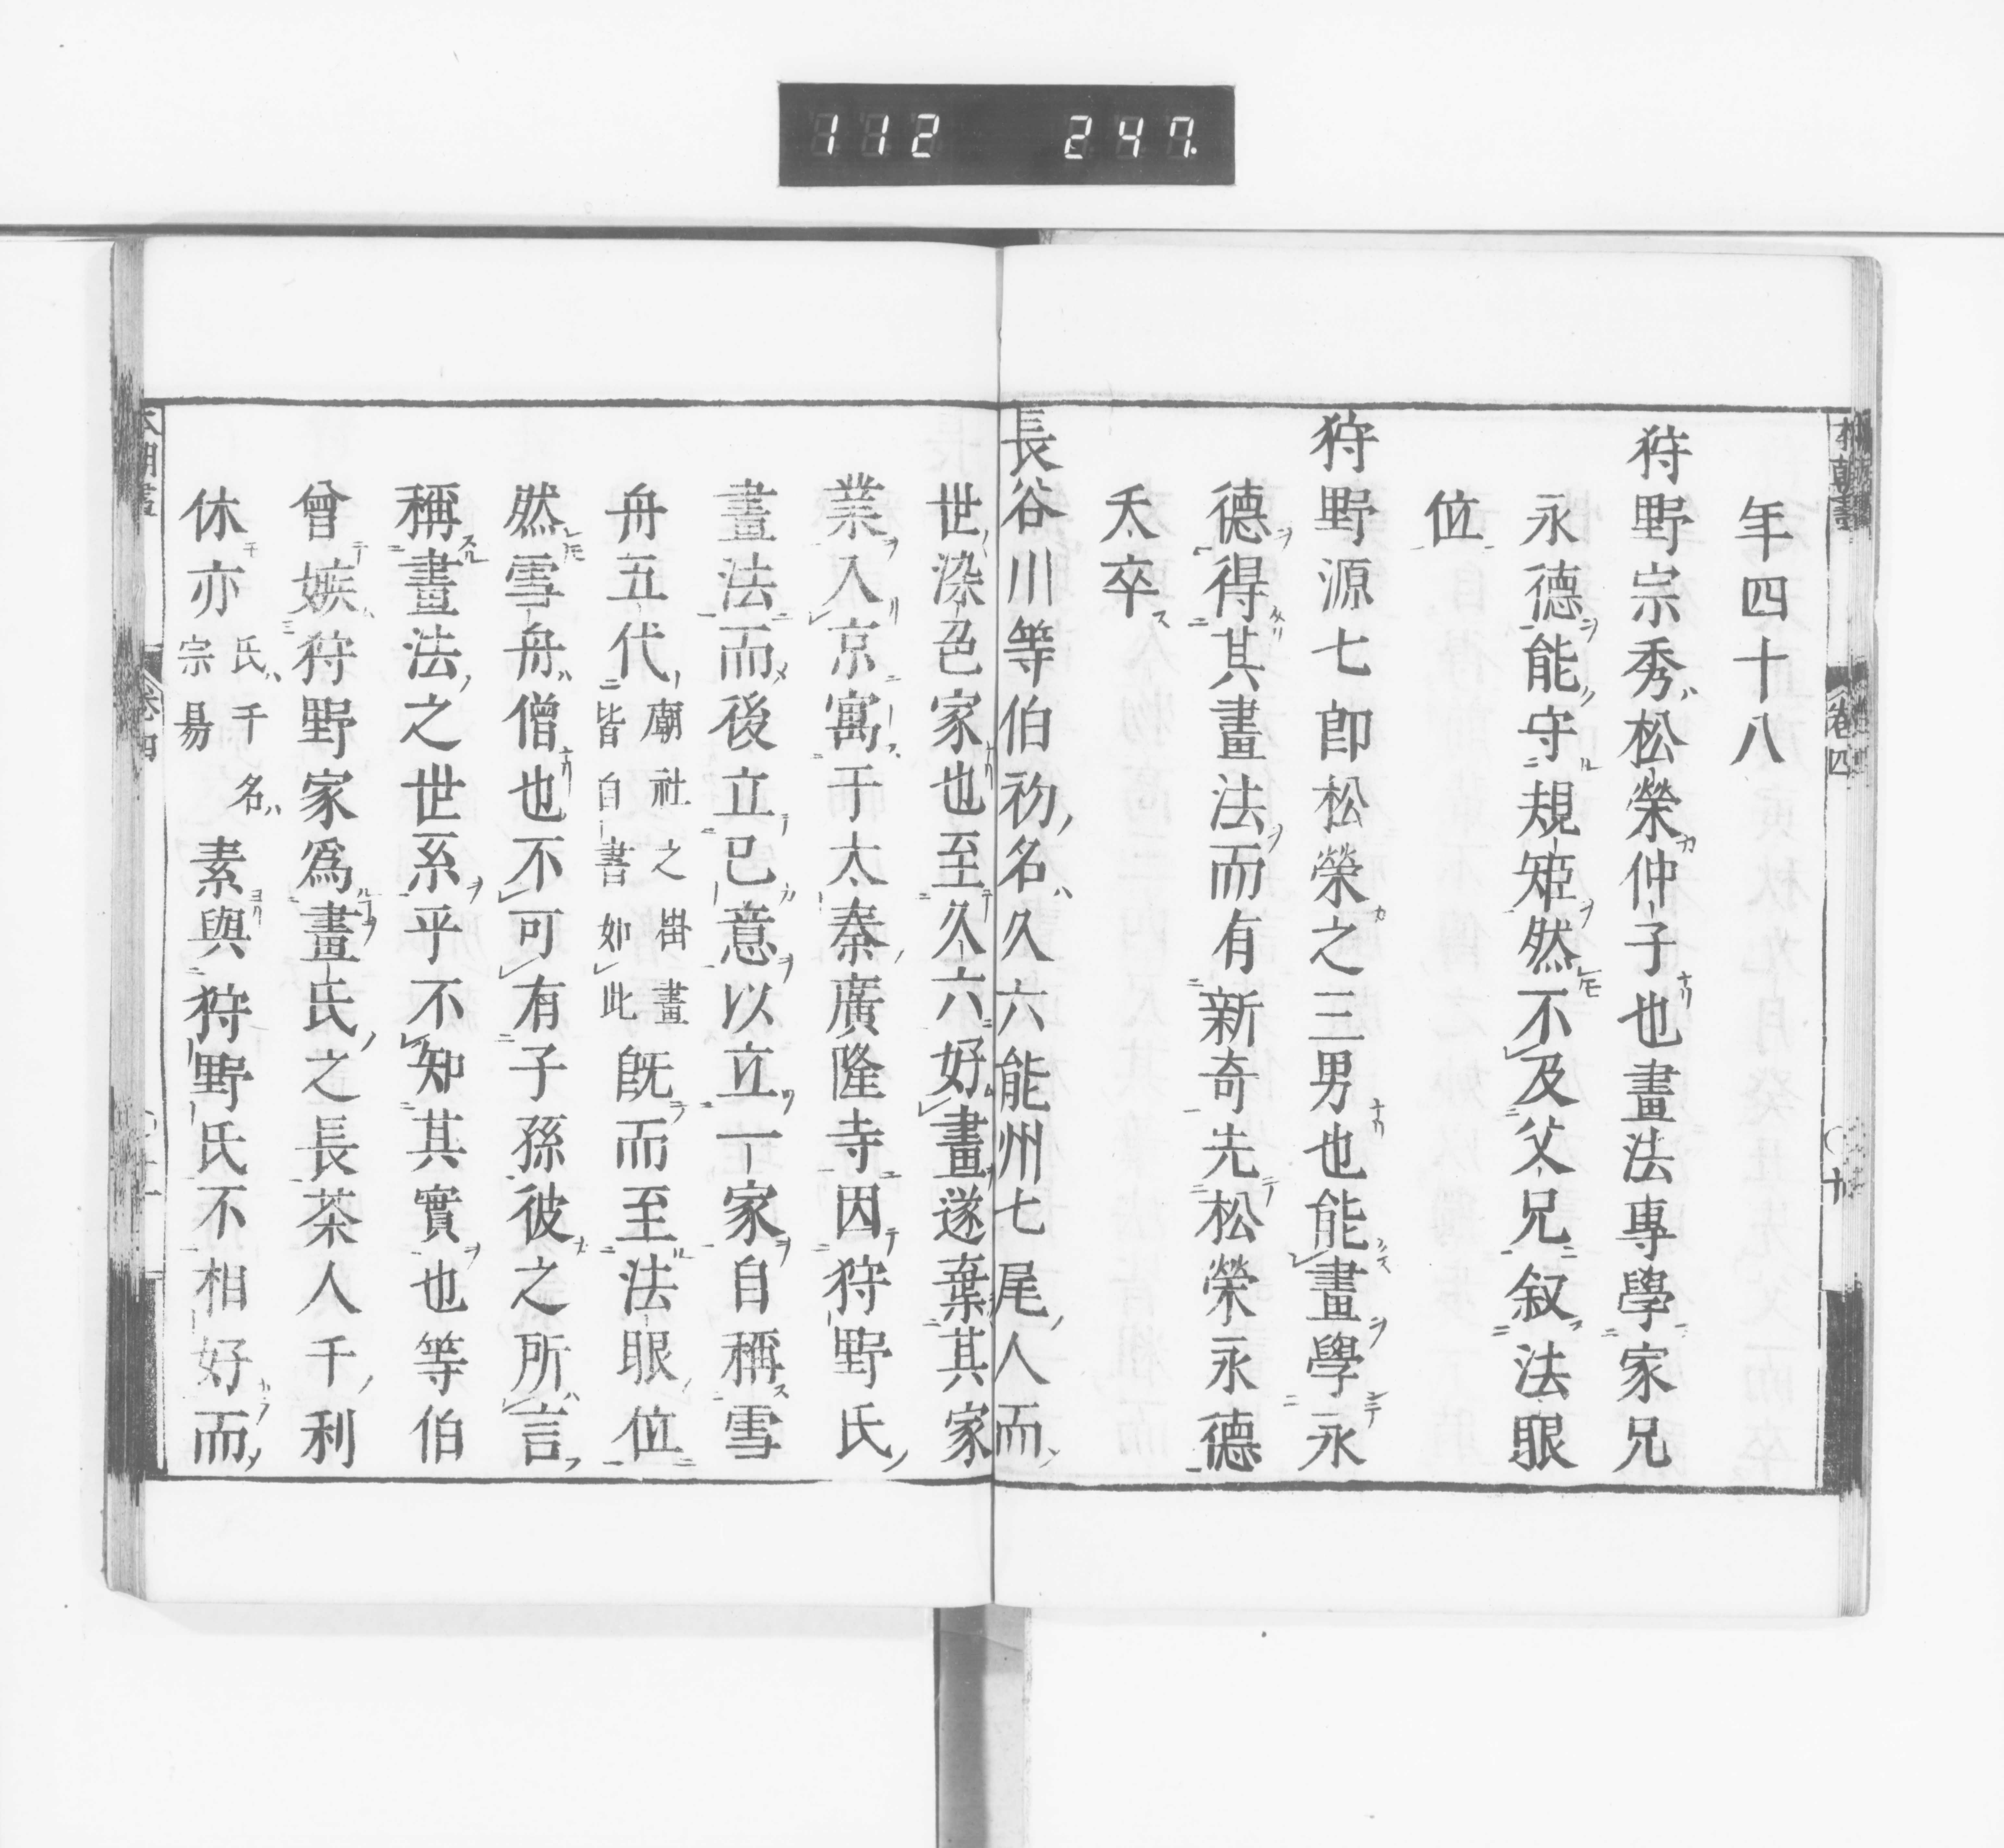 112 247
年四十八
狩野宗秀松榮仲子也畫法專學家兄
永德能守規矩然不及父兄叙法眼
位
狩野源七郎松榮之三男也能畫學永
德得其畫法而有新奇先松榮永德
夭卒
長谷川等伯初名久六能州七尾人而
世染色家也至久六好畫遂棄其家
業入京寓于太秦廣隆寺因狩野氏
畫法而後立已意以立一家自稱雪
舟五代廟社之掛畫皆自書如此既而至法眼位
然雪舟僧也不可有子孫彼之所言
稱畫法之世系乎不知其實也等伯
曾嫉狩野家爲畫氏之長茶人千利
休亦氏千名宗易素與狩野氏不相好而